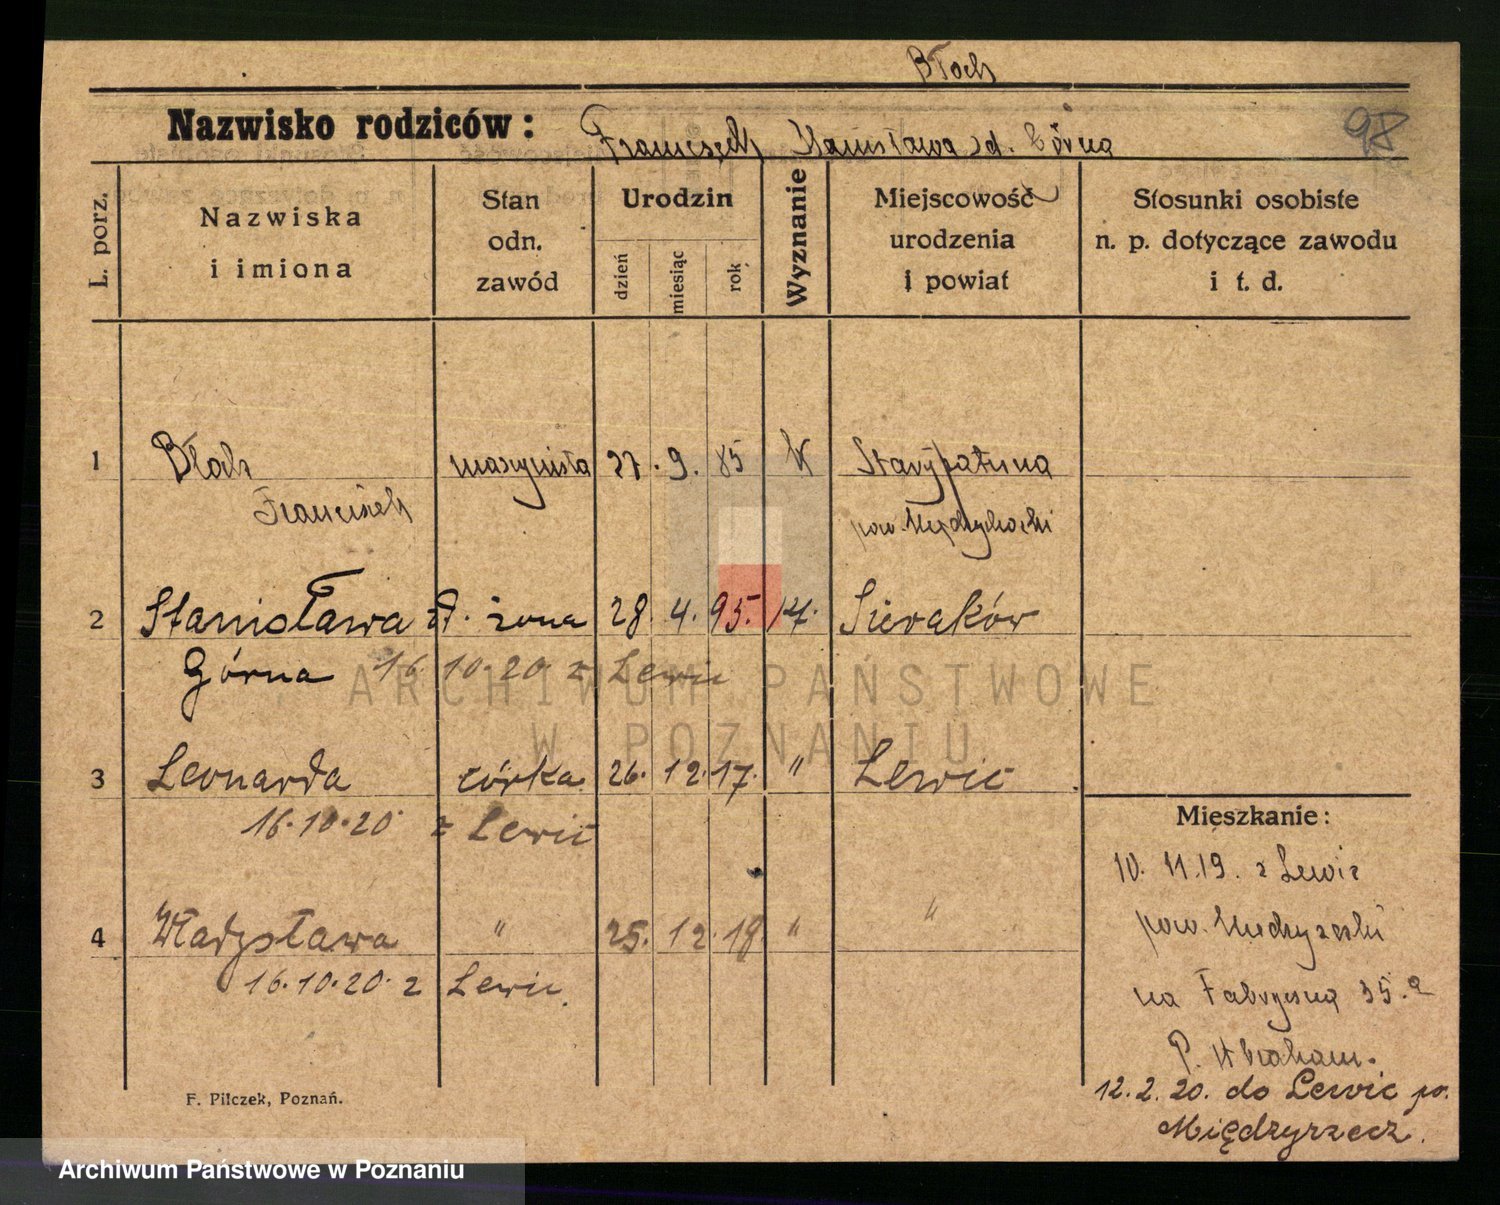 Błoch
98
Nazwisko rodziców: Franciszek Stanisława zd. Górna
L. porz.
Nazwiska
i imiona
Stan
odn.
zawód
Urodzin
dzień
miesiąc
rok
Wyznanie
Miejscowość
urodzenia
i powiat
Stosunki osobiste
n. p. dotyczące zawodu
i t. d.
1 Błoch maszynista 27. 9. 85 k
Franciszek
pow. Międzychodzki
2 Stanisława zd. żona 28. 4. 95. Sieraków
Górna 16 10.20 z Lewic
3 Leonarda córka 26. 12. 17. " Lewic
16.10.20 z Lewic
4 Władysława " 25. 12. 18 " "
16.10.20. z Lewic.
Mieszkanie:
10. 11.19. z Lewic
pow. Międzyrzecki
na Fabryczną 35.
P. Abraham.
12.2.20. do Lewic po.
Międzyrzecz.
F. Pilczek, Poznań.
ARCHIWUM PAŃSTWOWE
W POZNANIU
Archiwum Państwowe w Poznaniu